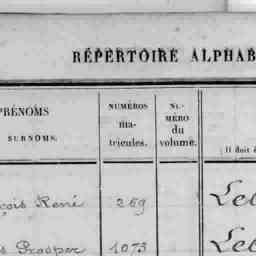 RÉPERTOIRE ALPHAB
PRÉNOMS
SURNOMS.
NUMÉROS
ma-
tricules.
NU-
MÉRO
du
volume.
Il doit ê
çois René 269 Le
s Prosper 1073 Le